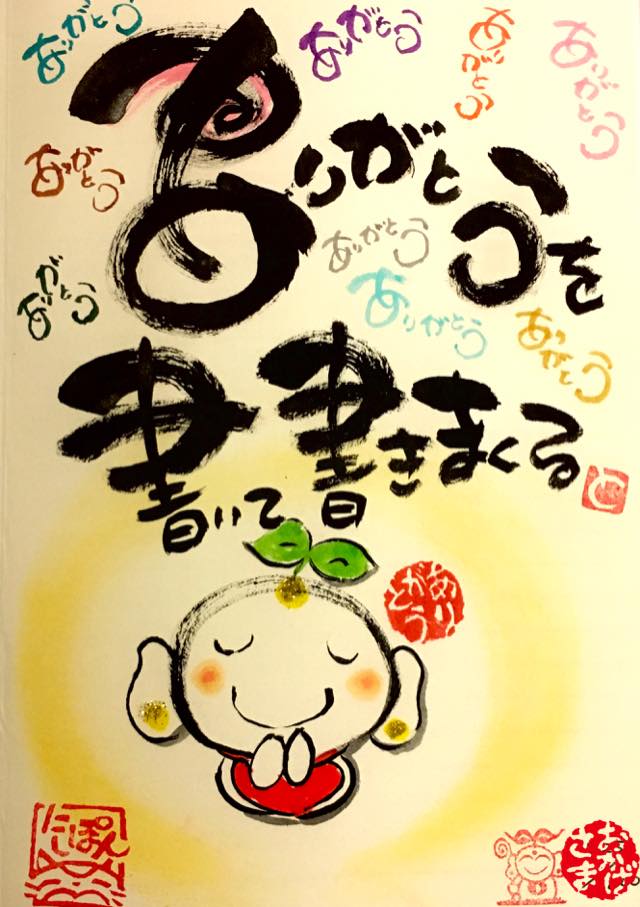 ありがとう
ありがとう
ありがとう
ありがとう
ありがとうを
ありがとう
ありがとう
ありがとう
ありがとう
ありがとう
書いて書きまくる
と
ありがとう
にっぽん
おかげさま